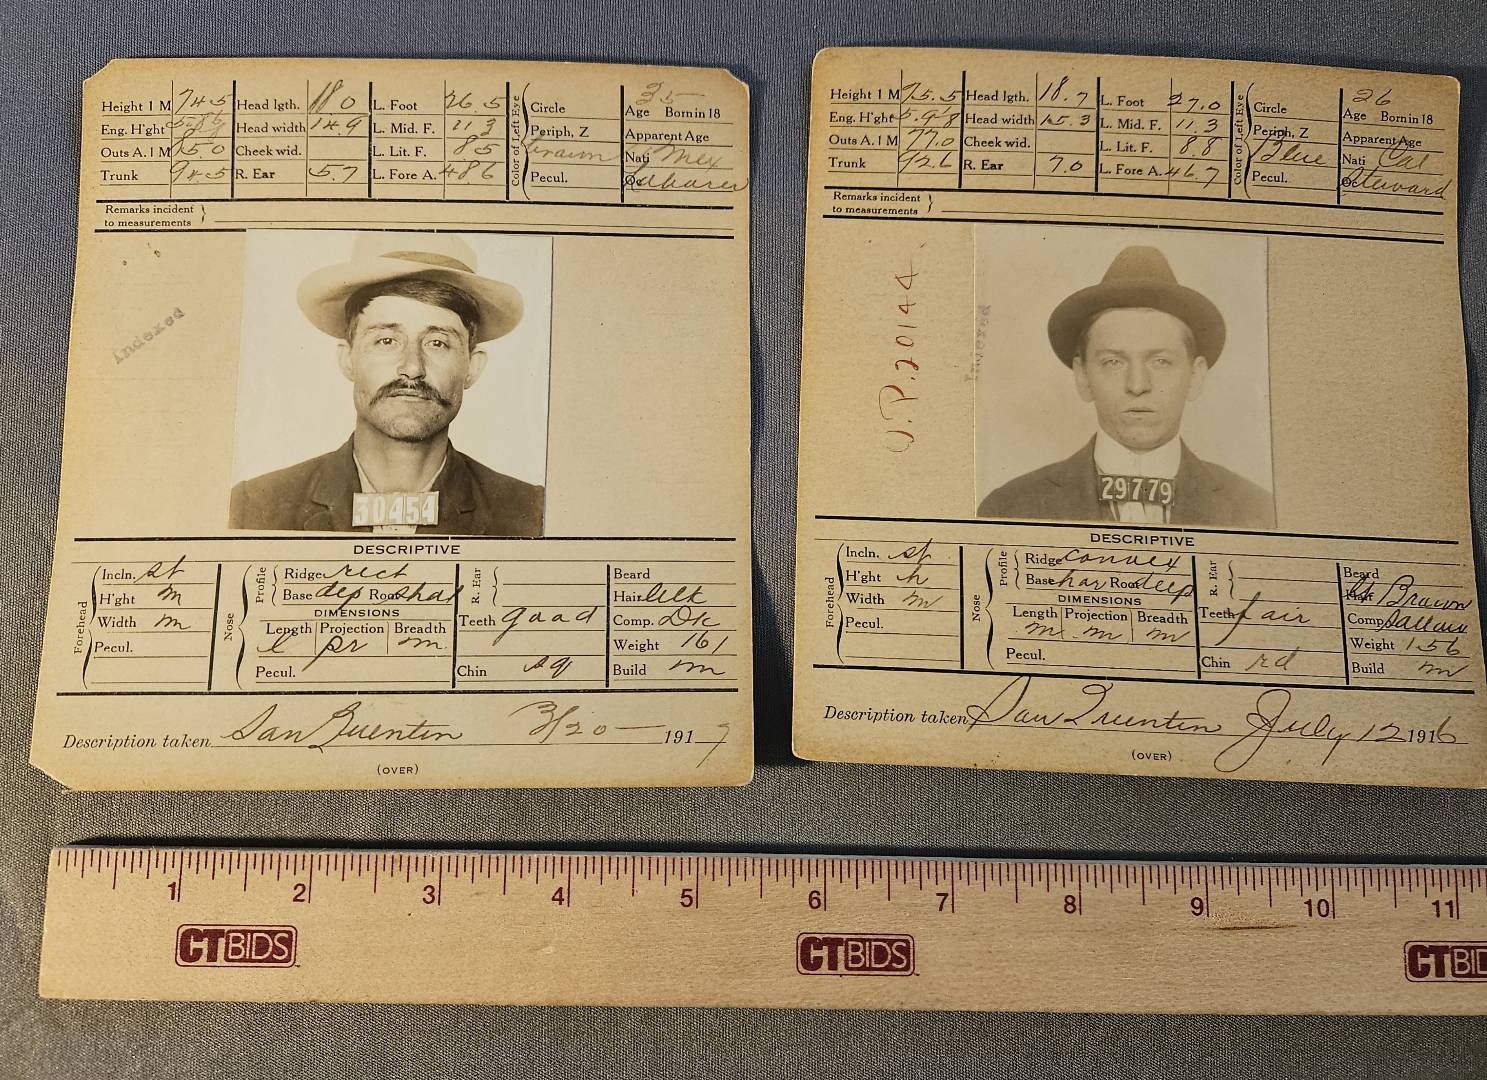 Height 1 M 74.5 Head lgth. 18 0 L. Foot 26.5 Circle 35
Age Born in 18
Eng. H'ght Head width 14.9 L. Mid. F. 11 3 Periph, Z Apparent Age
Outs A. 1 M 85 0 Cheek wid. L. Lit. F. 8 5 Nati Mex
Trunk 94.5 R. Ear 5.7 L. Fore A. 48 6 Pecul. Laborer
Color of Left Eye
Remarks incident
to measurements
Indexed
30454
DESCRIPTIVE
Forehead
Incln. st
H'ght m
Width m
Pecul.
Nose
Profile
Ridge rect
Base dep Root shal
DIMENSIONS
Length Projection Breadth
l pr m
Pecul.
R. Ear
Teeth good
Chin sq
Beard
Hair Blk
Comp. Dk
Weight 161
Build m
Description taken San Quentin 3/20 1917
(OVER)
Height 1 M 75.5 Head lgth. 18.7 L. Foot 27.0 Circle 26
Age Born in 18
Eng. H'ght 5.9 1/8 Head width 15.3 L. Mid. F. 11.3 Periph, Z Apparent Age
Outs A. 1 M 77.0 Cheek wid. L. Lit. F. 8.8 Blue Nati Cal
Trunk 92.6 R. Ear 7.0 L. Fore A. 46.7 Pecul. Steward
Color of Left Eye
Remarks incident
to measurements
U.P. 20144
Indexed
29779
DESCRIPTIVE
Forehead
Incln. st
H'ght h
Width m
Pecul.
Nose
Profile
Ridge convex
Base hor Root deep
DIMENSIONS
Length Projection Breadth
m m m
Pecul.
R. Ear
Teeth fair
Chin rd
Beard
Hair Lt Brown
Comp. Sallow
Weight 156
Build m
Description taken San Quentin July 12 1916
(OVER)
1 2 3 4 5 6 7 8 9 10 11
CTBIDS CTBIDS CTBID